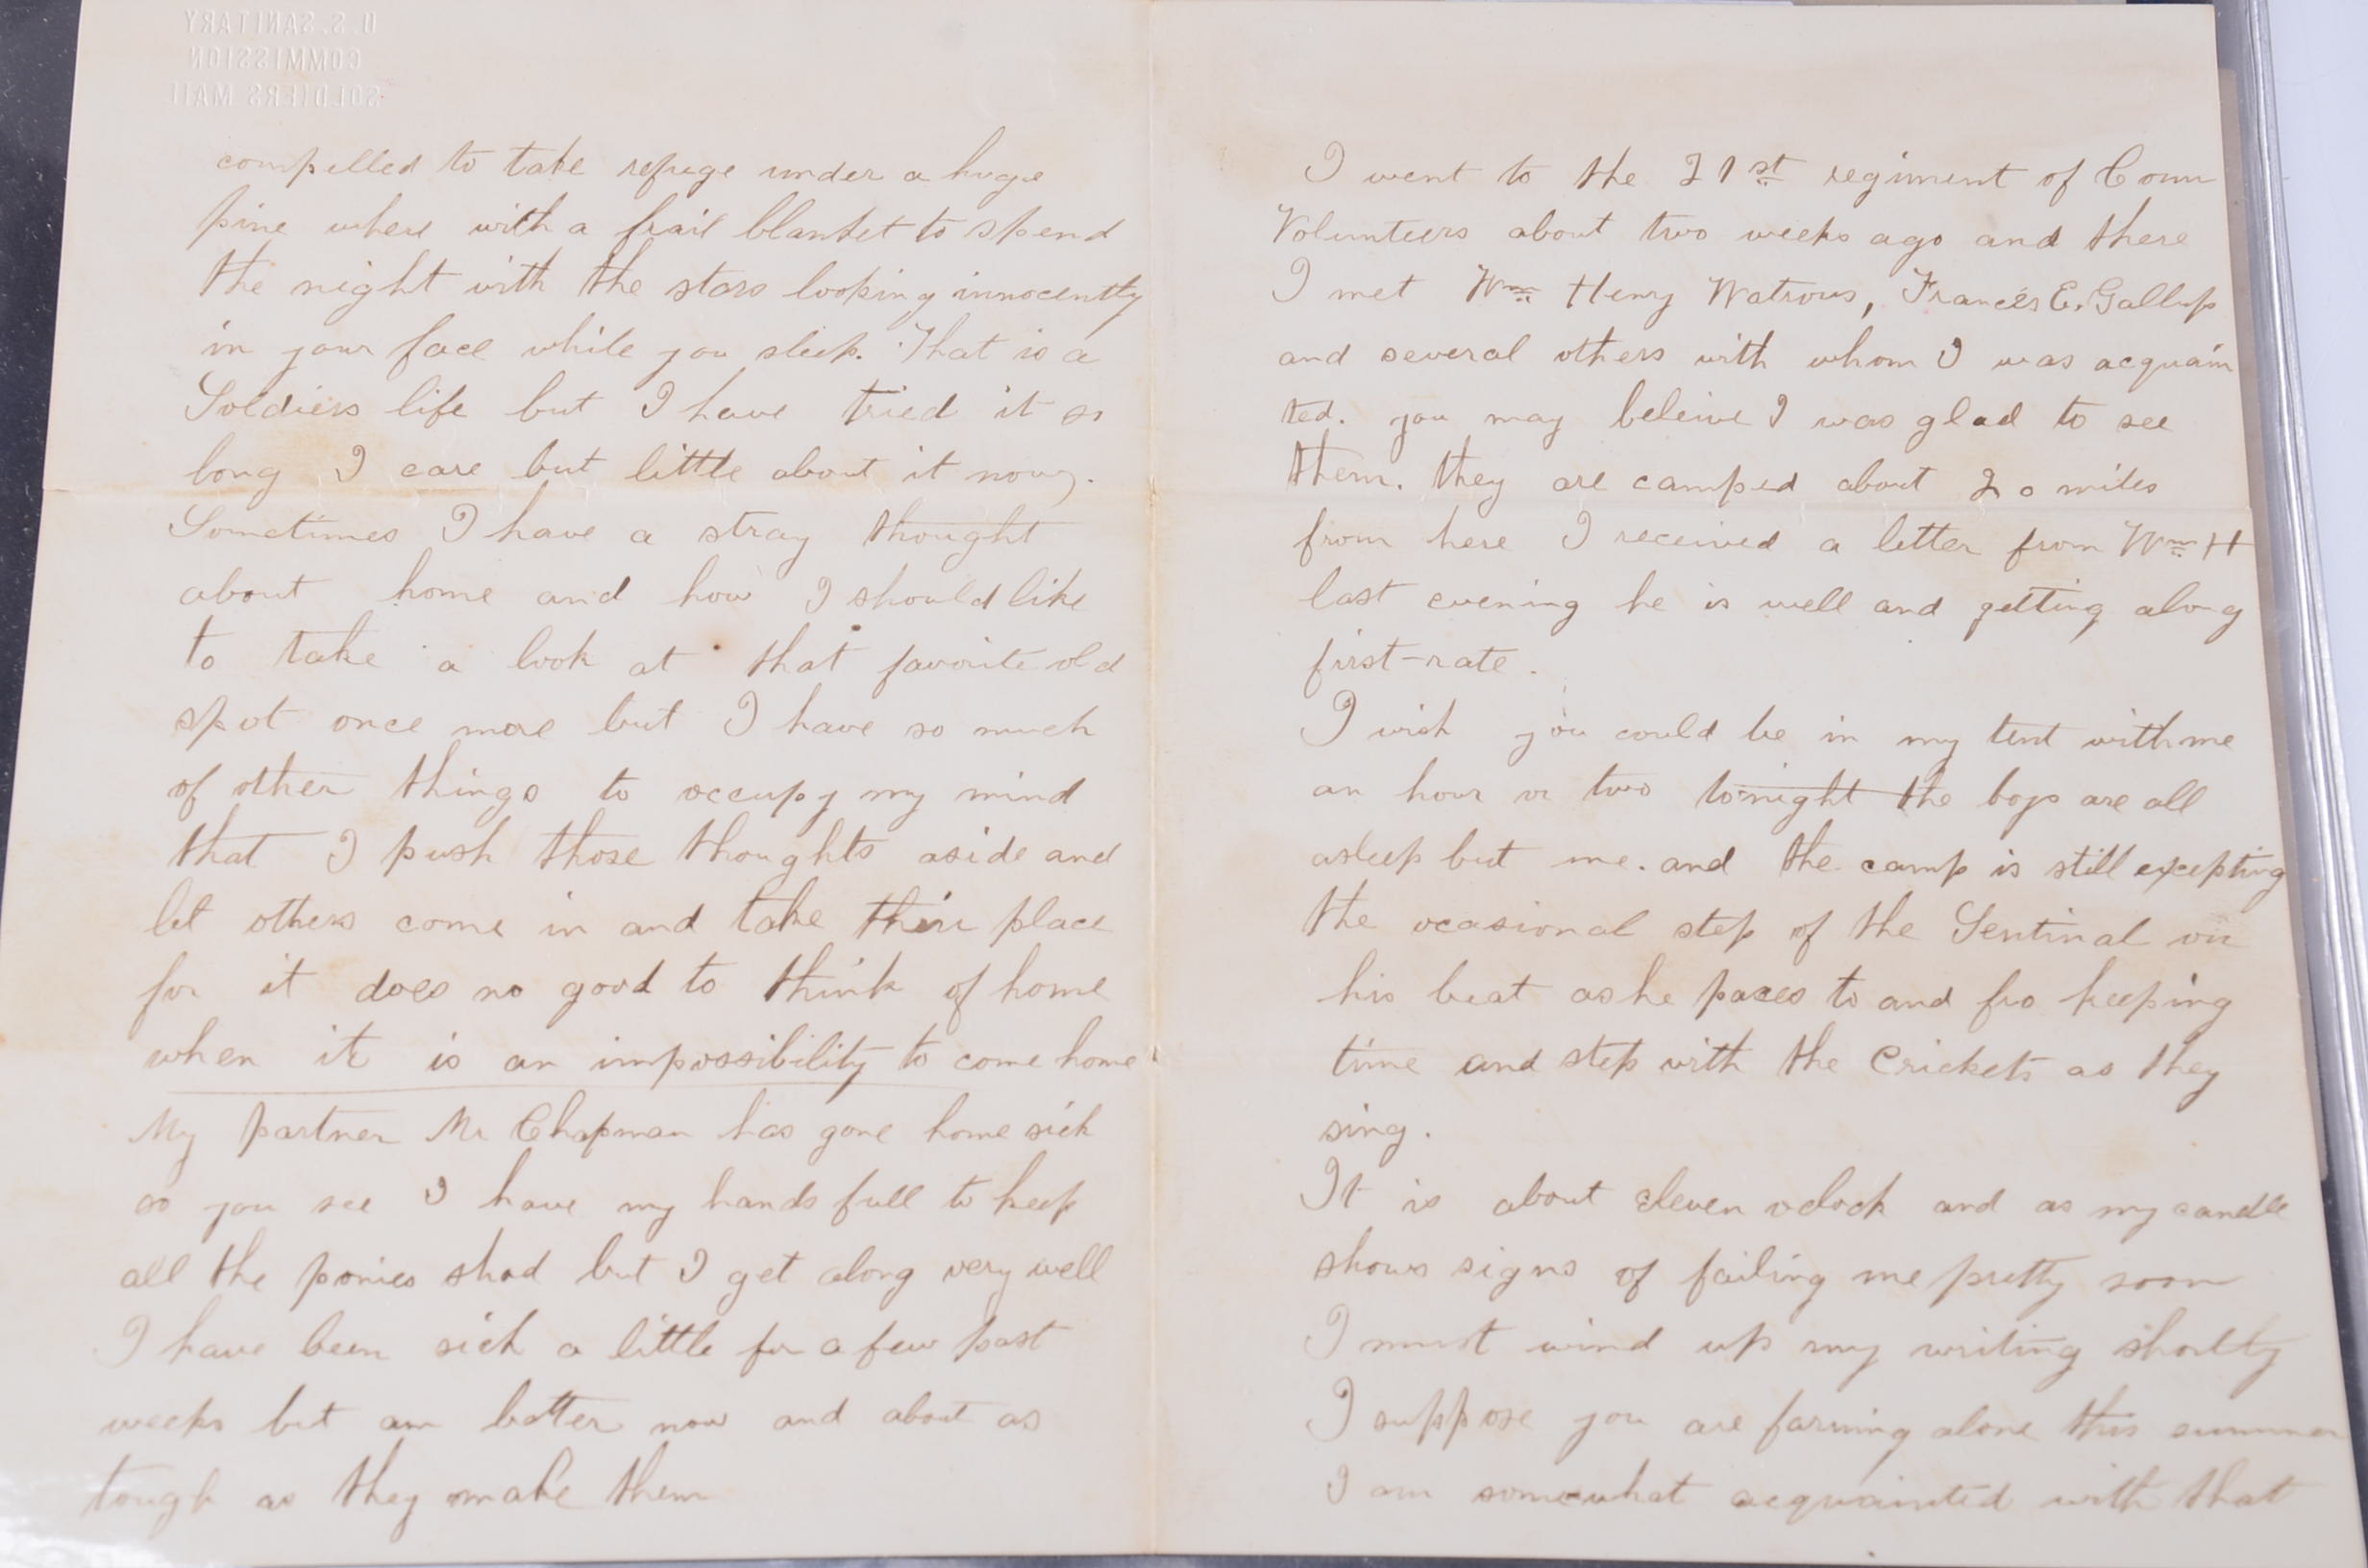 U.S. SANITARY
COMMISSION
SOLDIERS MAIL
compelled to take refuge under a huge
pine where with a frail blanket to spend
the night with the stars looking innocently
in your face while you sleep. That is a
Soldiers life but I have tried it so
long I care but little about it now.
Sometimes I have a stray thought
about home and how I should like
to take a look at that favorite old
spot once more but I have so much
of other things to occupy my mind
that I push those thoughts aside and
let others come in and take their place
for it does no good to think of home
when it is an impossibility to come home
My partner Mr Chapman has gone home sick
so you see I have my hands full to keep
all the ponies shod but I get along very well
I have been sick a little for a few past
weeks but am better now and about as
tough as they make them
I went to the 21st regiment of Conn
Volunteers about two weeks ago and there
I met Wm Henry Watrous, Francis E. Gallup
and several others with whom I was acquain
ted. you may beleive I was glad to see
them. they are camped about 20 miles
from here I received a letter from Wm H
last evening he is well and getting along
first-rate.
I wish you could be in my tent with me
an hour or two tonight the boys are all
asleep but me. and the camp is still excepting
the ocasional step of the Sentinal on
his beat as he paces to and fro keeping
time and step with the Crickets as they
sing.
It is about eleven oclock and as my candle
shows signs of failing me pretty soon
I must wind up my writing shortly
I suppose you are farming alone this summer
I am somewhat acquainted with that